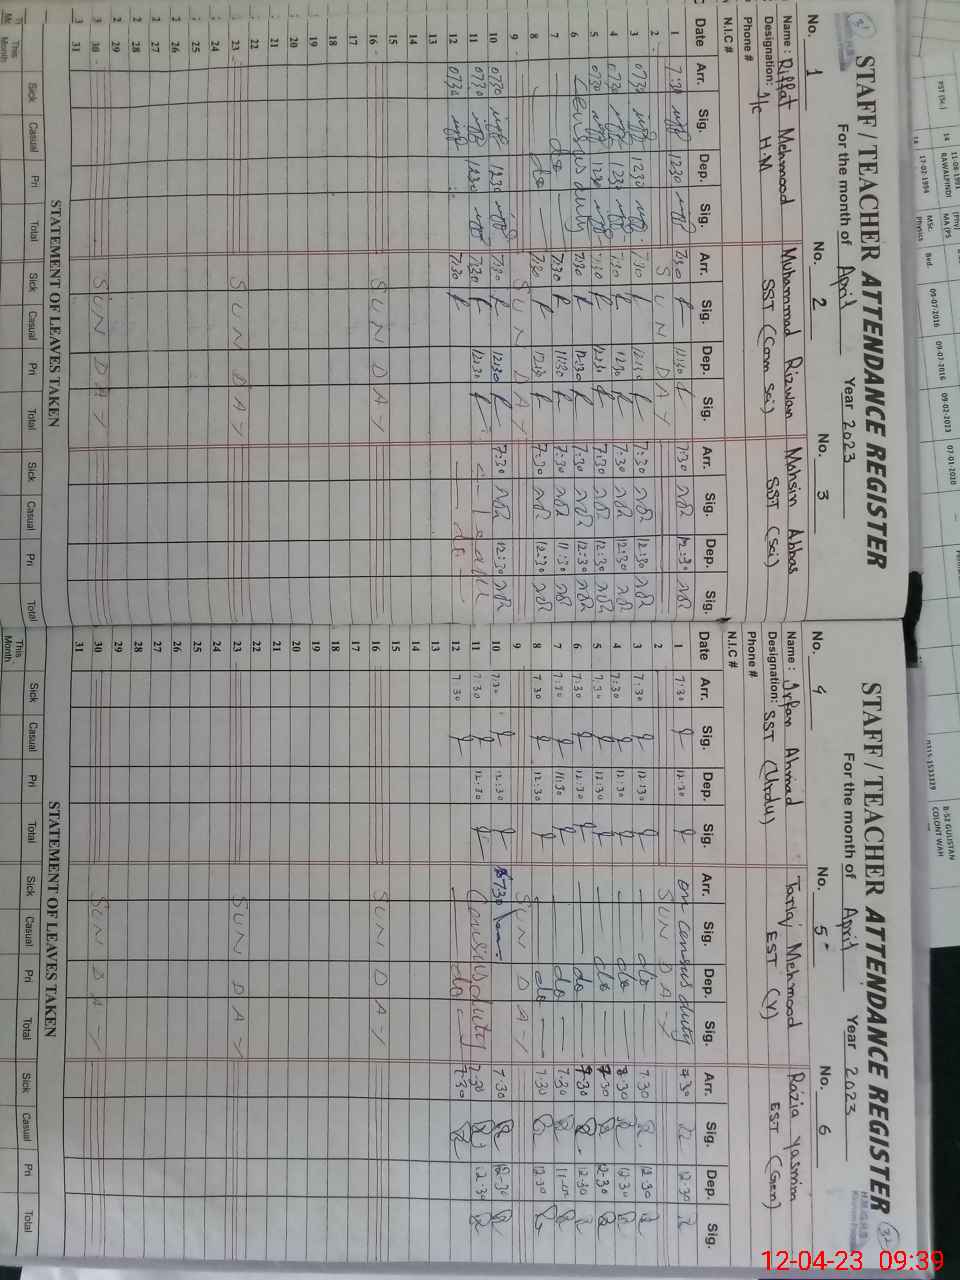 STAFF / TEACHER ATTENDANCE REGISTER
For the month of April Year 2023
No. 1 No. 2 No. 3
Name : Riffat Mehmood Muhammad Rizwan Mohsin Abbas
Designation: I/C H.M SST (Com Sci) SST (Sci)
Phone #
N.I.C #
Date Arr. Sig. Dep. Sig. Arr. Sig. Dep. Sig. Arr. Sig. Dep. Sig.
1 7:30 1230 7:30 11:30 7:30 12:30
2 SUNDAY
3 0730 1230 7:30 12:30 7:30 12:30
4 0730 1230 7:30 12:30 7:30 12:30
5 0730 1230 7:30 12:30 7:30 12:30
6 Census duty 7:30 12:30 7:30 12:30
7 do 7:30 11:30 7:30 11:30
8 do 7:30 12:30 7:30 12:30
9 SUNDAY
10 0730 1230 7:30 12:30 7:30 12:30
11 0730 1230 7:30 12:30 Leave
12 0730 7:30 do
13
14
15
16 SUNDAY
17
18
19
20
21
22
23 SUNDAY
24
25
26
27
28
29
30 SUNDAY
31
STATEMENT OF LEAVES TAKEN
Sick Casual Pri Total Sick Casual Pri Total Sick Casual Pri Total
This Month
STAFF / TEACHER ATTENDANCE REGISTER
32
For the month of April Year 2023
No. 4 No. 5 No. 6
Name : Irfan Ahmad Tariq Mehmood Razia Yasmin
Designation: SST (Urdu) EST (V) EST (Gen)
Phone #
N.I.C #
Date Arr. Sig. Dep. Sig. Arr. Sig. Dep. Sig. Arr. Sig. Dep. Sig.
1 7:30 12:30 on census duty 7:30 12:30
2 SUNDAY
3 7:30 12:30 do 7:30 12:30
4 7:30 12:30 do 7:30 12:30
5 7:30 12:30 do 7:30 12:30
6 7:30 12:30 do 7:30 12:30
7 7:30 11:30 do 7:30
8 7:30 12:30 do 7:30 12:30
9 SUNDAY
10 7:30 12:30 0730 7:30 12:30
11 7:30 12:30 Census duty 7:30 12:30
12 7:30 do 7:30
13
14
15
16 SUNDAY
17
18
19
20
21
22
23 SUNDAY
24
25
26
27
28
29
30 SUNDAY
31
STATEMENT OF LEAVES TAKEN
Sick Casual Pri Total Sick Casual Pri Total Sick Casual Pri Total
This Month
PST (Sc.)
14 11-08-1991 RAWALPINDI MA (PS
14 17-02-1994 MSc. Physics Bed. 09-07-2016 09-07-2016 09-02-2023 07-01-2020
B-52 GULISTAN COLONY WAH
12-04-23 09:39